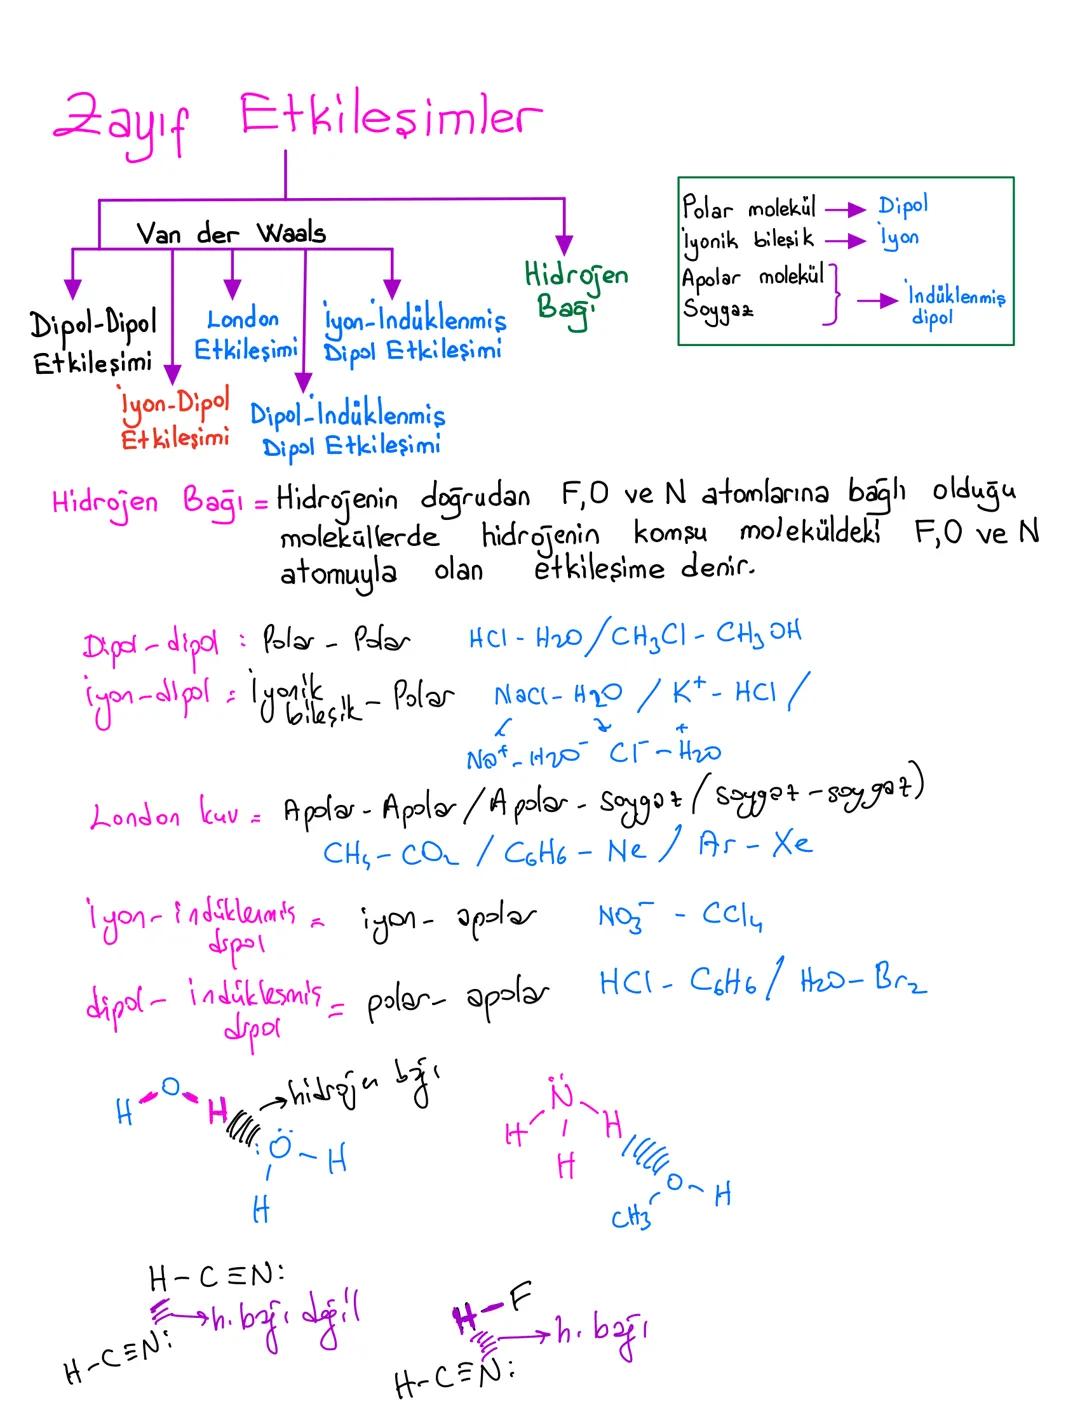 Zayıf Etkileşimler
Van der Waals
Dipol-Dipol
Etkileşimi
İyon-Dipol
Etkileşimi
London
Etkileşimi
Dipol-İndüklenmiş
Dipol Etkileşimi
İyon-İndüklenmiş
Dipol Etkileşimi
Hidrojen
Bağı
Polar molekül → Dipol
İyonik bileşik → İyon
Apolar molekül
Soygaz
} → İndüklenmiş
dipol
Hidrojen Bağı = Hidrojenin doğrudan F,O ve N atomlarına bağlı olduğu
moleküllerde hidrojenin komşu moleküldeki F,O ve N
atomuyla olan etkileşime denir.
Dipol-dipol : Polar - Polar HCl - H2O / CH3Cl - CH3OH
iyon-dipol = İyonik bileşik - Polar NaCl - H2O / K+ - HCl /
Na+ - H2O- Cl- - H2O+
London kuv = Apolar - Apolar / Apolar - soygaz / soygaz - soygaz)
CH4 - CO2 / C6H6 - Ne / Ar - Xe
İyon-indüklenmiş dipol = iyon - apolar NO3- - CCl4
dipol-indükleşmiş dipol = polar - apolar HCl - C6H6 / H2O - Br2
H-O-H
→ hidrojen bağı
:Ö-H
H
N̈
H H
H
O-H
CH3
H-C≡N:
→ h. bağı değil
H-C≡N:
H-F
→ h. bağı
H-C≡N: